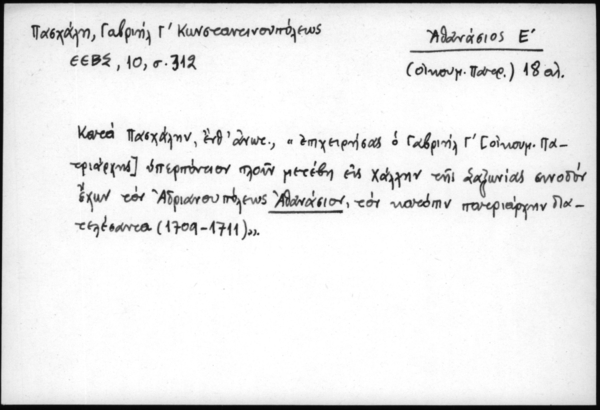 Πασχάλη, Γαβριήλ Γ' Κωνσταντινουπόλεως
ΕΕΒΣ, 10, σ. 312
Ἀθανάσιος Ε'
(οἰκουμ. Πατρ.) 18 αἰ.
Κατά Πασχάλην, ἔνθ' ἀνωτ., «ἐπιχειρήσας ὁ Γαβριήλ Γ' [οἰκουμ. Πα-
τριάρχης] ὑπερπόντιον πλοῦν μετέβη εἰς Χάλλην τῆς Σαξωνίας συνοδόν
ἔχων τόν Ἀδριανουπόλεως Ἀθανάσιον, τόν κατόπιν πατριάρχην δια-
τελέσαντα (1709-1711)».